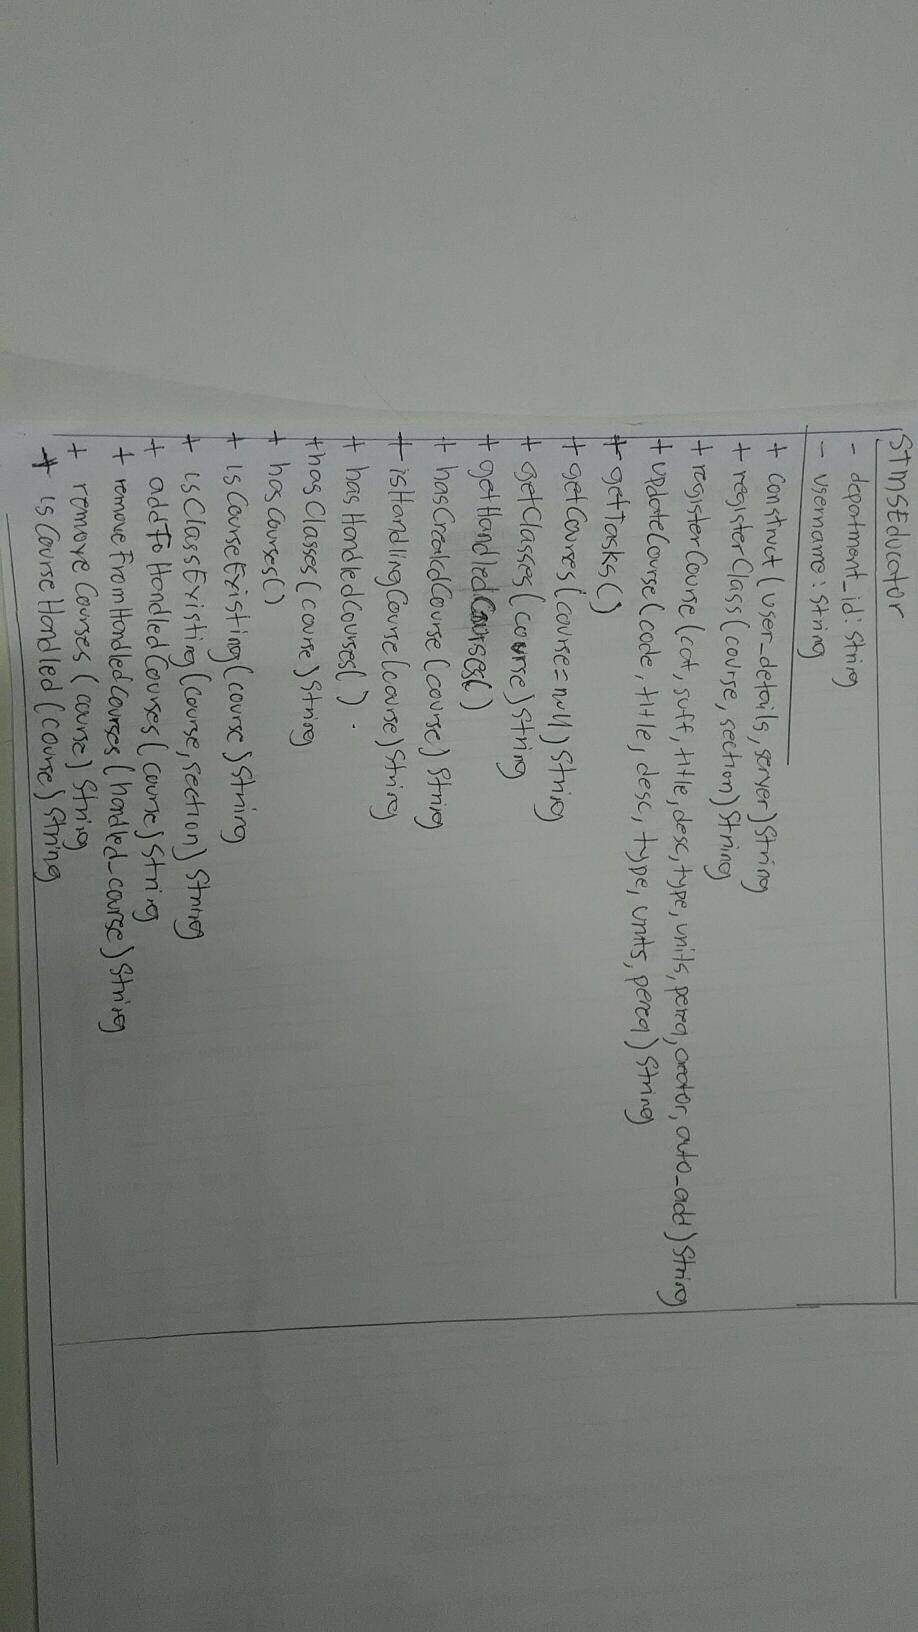 StmsEducator
- department_id: String
- username: String
+ construct (user_details, server) String
+ registerClass (course, section) String
+ registerCourse (cat, suff, title, desc, type, units, pereq, creator, auto_add) String
+ updateCourse (code, title, desc, type, units, pereq) String
+ getTasks()
+ getCourses (course=null) String
+ getClasses (course) String
+ getHandledCourses()
+ hasCreatedCourse (course) String
+ isHandlingCourse (course) String
+ hasHandledCourses()
+ hasClasses (course) String
+ hasCourses()
+ isCourseExisting (course) String
+ isClassExisting (course, section) String
+ addToHandledCourses (course) String
+ removeFromHandledCourses (handled_course) String
+ removeCourses (course) String
+ isCourseHandled (course) String